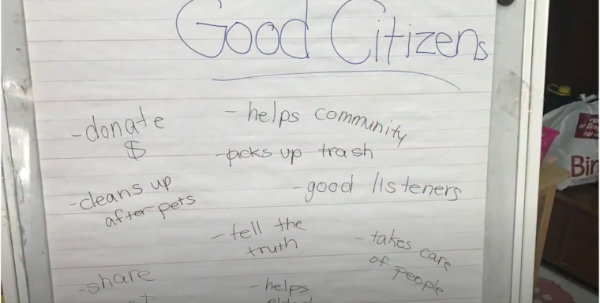 Good Citizens
- donate
$
- helps community
- picks up trash
- cleans up
after pets
- good listeners
- tell the
truth
- takes care
of people
- share
- helps
Bir